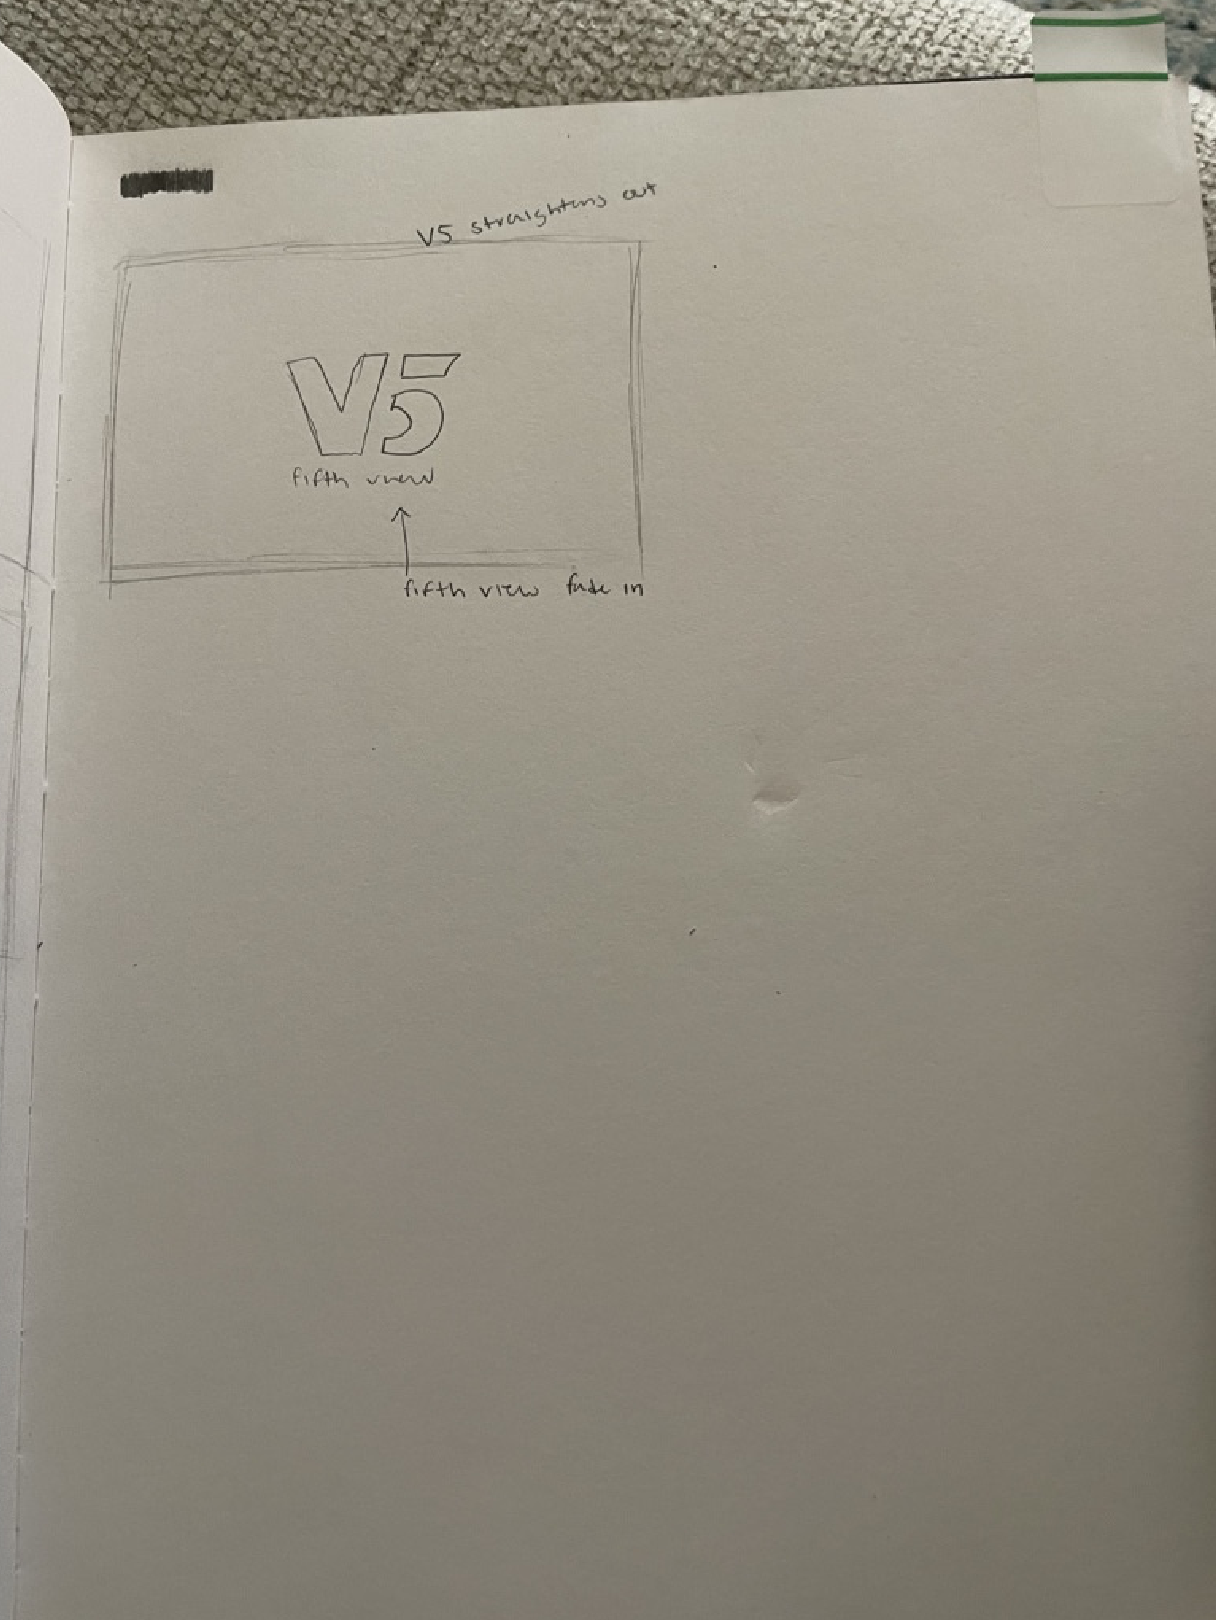 V5 straighting out
V5
fifth view
fifth view fade in